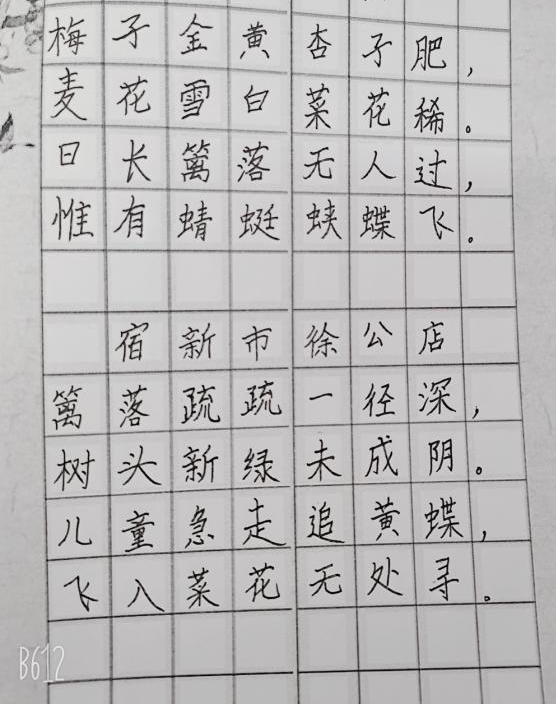 梅子金黄杏子肥，
麦花雪白菜花稀。
日长篱落无人过，
惟有蜻蜓蛱蝶飞。
宿新市徐公店
篱落疏疏一径深，
树头新绿未成阴。
儿童急走追黄蝶，
飞入菜花无处寻。
B612